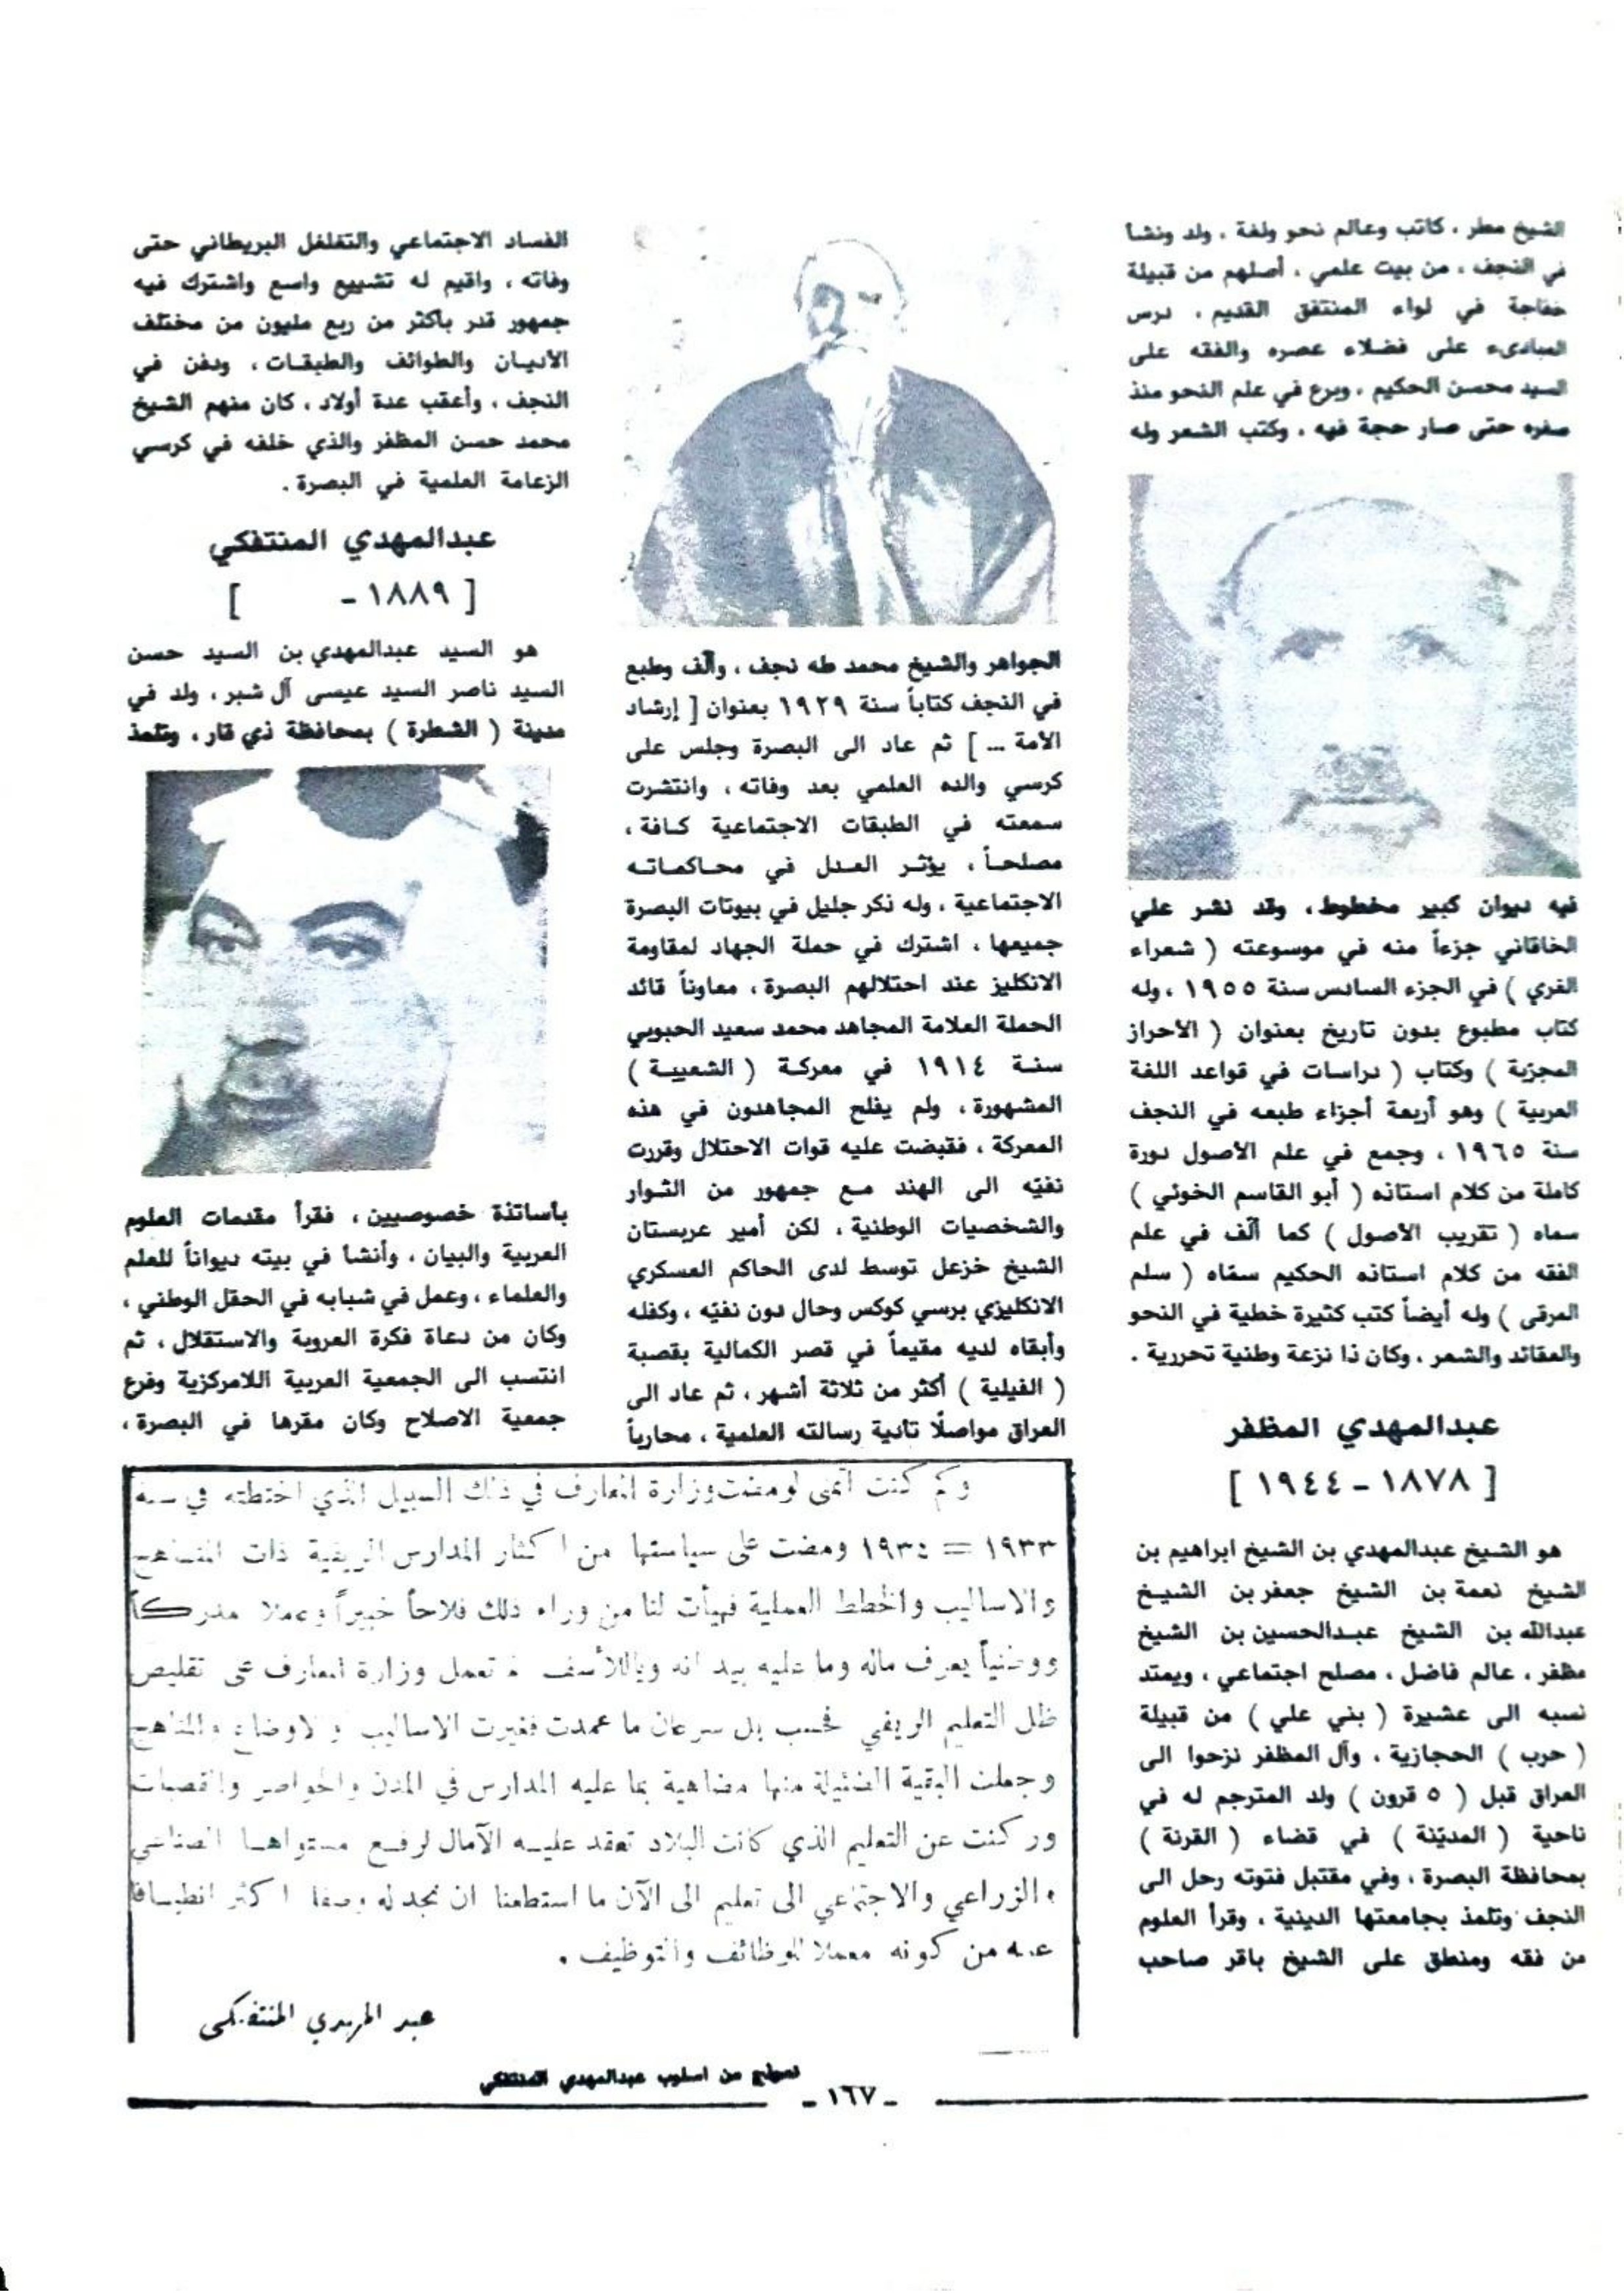 الشيخ مطر ، كاتب وعالم نحو ولغة ، ولد ونشأ
في النجف ، من بيت علمي ، أصلهم من قبيلة
خفاجة في لواء المنتفق القديم ، درس
المبادىء على فضلاء عصره والفقه على
السيد محسن الحكيم ، وبرع في علم النحو منذ
صغره حتى صار حجة فيه ، وكتب الشعر وله
فيه ديوان كبير مخطوط ، وقد نشر علي
الخاقاني جزءاً منه في موسوعته ( شعراء
الغري ) في الجزء السادس سنة ١٩٥٥ ، وله
كتاب مطبوع بدون تاريخ بعنوان ( الأحراز
المجزية ) وكتاب ( دراسات في قواعد اللغة
العربية ) وهو أربعة أجزاء طبعه في النجف
سنة ١٩٦٥ ، وجمع في علم الأصول دورة
كاملة من كلام استاذه ( أبو القاسم الخوئي )
سماه ( تقريب الأصول ) كما ألّف في علم
الفقه من كلام استاذه الحكيم سمّاه ( سلم
المرقى ) وله أيضاً كتب كثيرة خطية في النحو
والعقائد والشعر ، وكان ذا نزعة وطنية تحررية .
عبدالمهدي المظفر
[ ١٨٧٨ - ١٩٤٤ ]
هو الشيخ عبدالمهدي بن الشيخ ابراهيم بن
الشيخ نعمة بن الشيخ جعفر بن الشيخ
عبدالله بن الشيخ عبدالحسين بن الشيخ
مظفر ، عالم فاضل ، مصلح اجتماعي ، ويمتد
نسبه الى عشيرة ( بني علي ) من قبيلة
( حرب ) الحجازية ، وآل المظفر نزحوا الى
العراق قبل ( ٥ قرون ) ولد المترجم له في
ناحية ( المديّنة ) في قضاء ( القرنة )
بمحافظة البصرة ، وفي مقتبل فتوته رحل الى
النجف وتلمذ بجامعتها الدينية ، وقرأ العلوم
من فقه ومنطق على الشيخ باقر صاحب
الجواهر والشيخ محمد طه نجف ، وألّف وطبع
في النجف كتاباً سنة ١٩٢٩ بعنوان [ إرشاد
الأمة ... ] ثم عاد الى البصرة وجلس على
كرسي والده العلمي بعد وفاته ، وانتشرت
سمعته في الطبقات الاجتماعية كافة ،
مصلحاً ، يؤثر العدل في محاكماته
الاجتماعية ، وله ذكر جليل في بيوتات البصرة
جميعها ، اشترك في حملة الجهاد لمقاومة
الانكليز عند احتلالهم البصرة ، معاوناً قائد
الحملة العلامة المجاهد محمد سعيد الحبوبي
سنة ١٩١٤ في معركة ( الشعيبة )
المشهورة ، ولم يفلح المجاهدون في هذه
المعركة ، فقبضت عليه قوات الاحتلال وقررت
نفيّه الى الهند مع جمهور من الثوار
والشخصيات الوطنية ، لكن أمير عربستان
الشيخ خزعل توسط لدى الحاكم العسكري
الانكليزي برسي كوكس وحال دون نفيّه ، وكفله
وأبقاه لديه مقيماً في قصر الكمالية بقصبة
( الفيلية ) أكثر من ثلاثة أشهر ، ثم عاد الى
العراق مواصلًا تأدية رسالته العلمية ، محارباً
الفساد الاجتماعي والتغلغل البريطاني حتى
وفاته ، واقيم له تشييع واسع واشترك فيه
جمهور قدر بأكثر من ربع مليون من مختلف
الأديان والطوائف والطبقات ، ودفن في
النجف ، وأعقب عدة أولاد ، كان منهم الشيخ
محمد حسن المظفر والذي خلفه في كرسي
الزعامة العلمية في البصرة .
عبدالمهدي المنتفكي
[ ١٨٨٩ - ]
هو السيد عبدالمهدي بن السيد حسن
السيد ناصر السيد عيسى آل شبر ، ولد في
مدينة ( الشطرة ) بمحافظة ذي قار ، وتلمذ
بأساتذة خصوصيين ، فقرأ مقدمات العلوم
العربية والبيان ، وأنشأ في بيته ديواناً للعلم
والعلماء ، وعمل في شبابه في الحقل الوطني ،
وكان من دعاة فكرة العروبة والاستقلال ، ثم
انتسب الى الجمعية العربية اللامركزية وفرع
جمعية الاصلاح وكان مقرها في البصرة ،
وكم كنت اتمنى لو مضت وزارة المعارف في ذلك السبيل الذي اختطته في سنة
١٩٣٣ = ١٩٣٤ ومضت على سياستها من اكثار المدارس الريفية ذات المناهج
والاساليب والخطط العملية فهيأت لنا من وراء ذلك فلاحاً خبيراً وعملا مدركاً
ووطنياً يعرف ماله وما عليه بيد انه وياللأسف لم تعمل وزارة المعارف على تقليص
ظل التعليم الريفي فحسب بل سرعان ما عمدت فغيرت الاساليب والاوضاع والمناهج
وجعلت البقية الضئيلة منها مضاهية بما عليه المدارس في المدن والحواضر والقصبات
وركنت عن التعليم الذي كانت البلاد تعقد عليه الآمال لرفع مستواها الصناعي
والزراعي والاجتماعي الى تعليم الى الآن ما استطعنا ان نجد له وصفا اكثر انطباقا
عليه من كونه معملا للوظائف والتوظيف .
عبد المهدي المنتفكي
نموذج من اسلوب عبدالمهدي المنتفكي
- ١٦٧ -